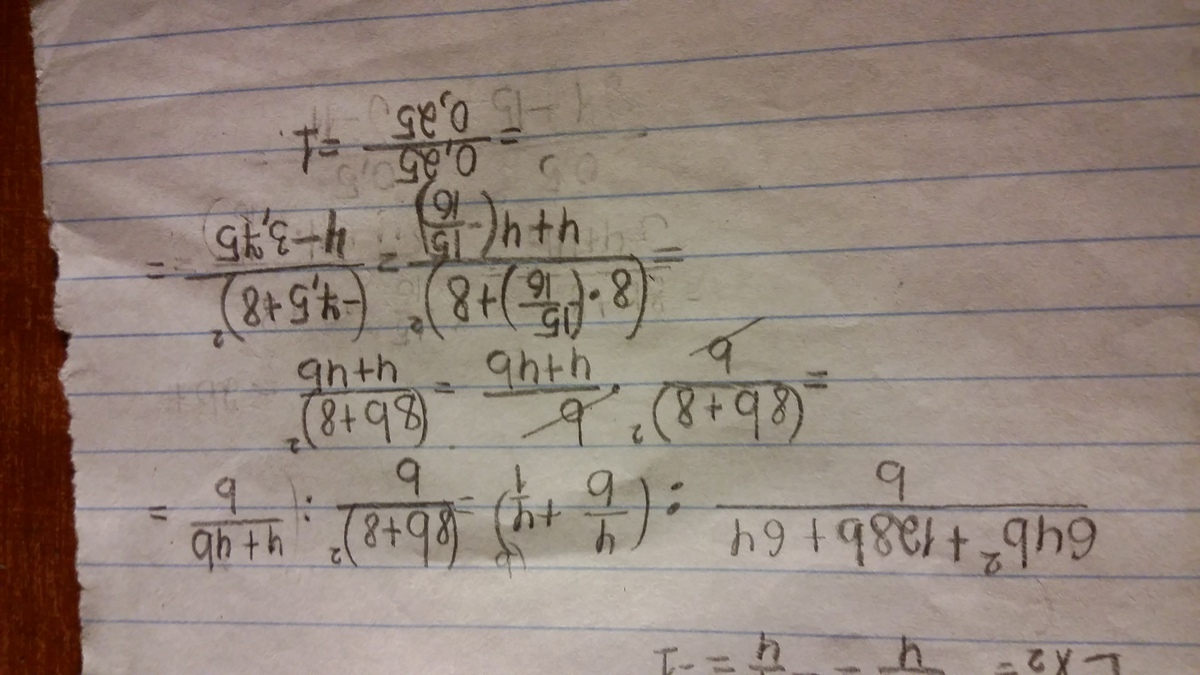 L x2 = 4/4 - 4/4 = -1
(64b² + 128b + 64)/b : (4/b + 4/1) = (8b+8)²/b : (4+4b)/b =
= (8b+8)²/b · b/(4+4b) = (8b+8)²/(4+4b)
= (8·(-15/16)+8)²/(4+4(-15/16)) = (-7,5+8)²/(4-3,75) =
= 0,25/0,25 = 1.